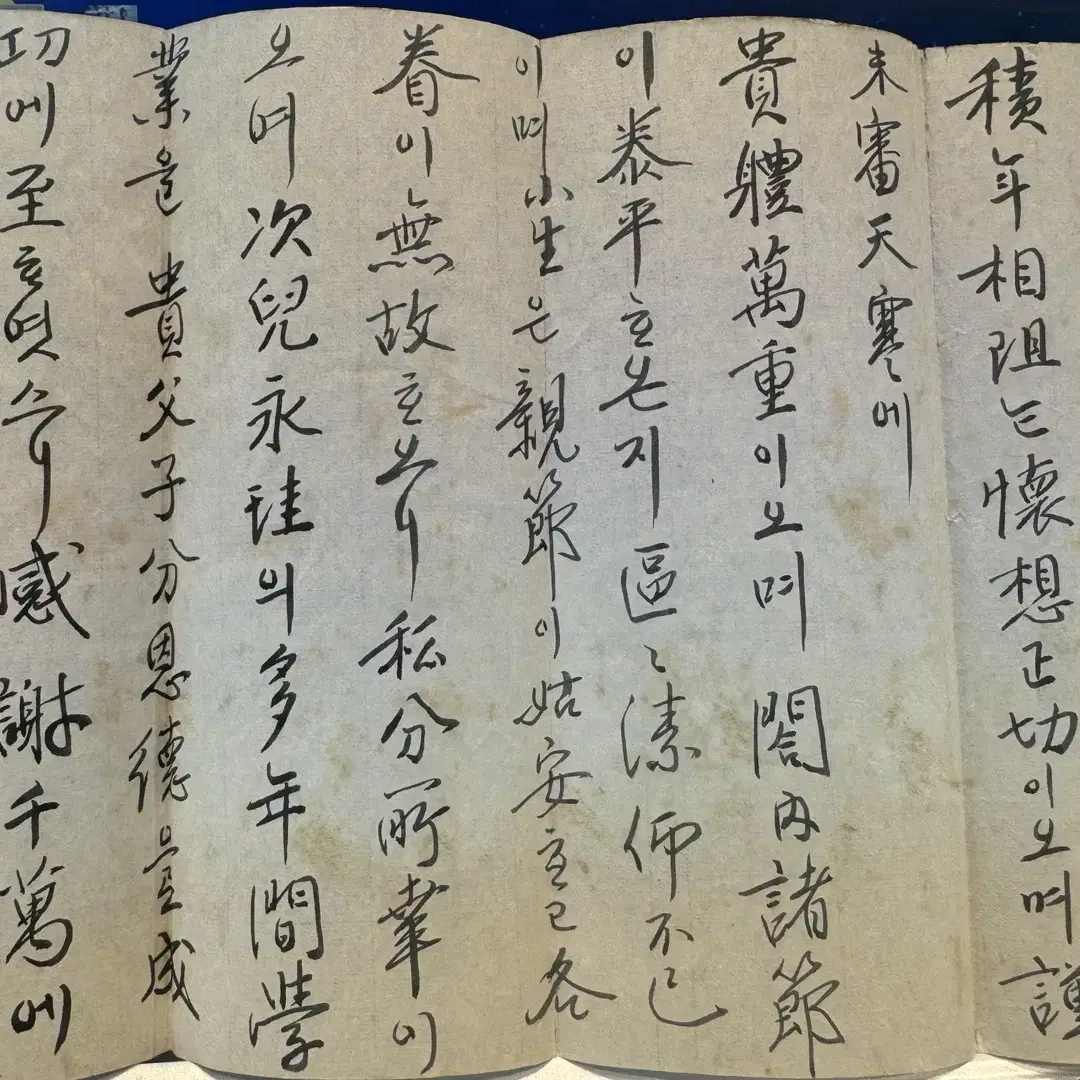 積年相阻之懷想正切이오며 謹
未審天寒에
貴體萬重이오며 閤內諸節
이 泰平ᄒᆞ온지 區〻溸仰不已
이며 小生은 親節이 姑安ᄒᆞ고 各
眷이 無故ᄒᆞ오니 私分所幸이
오며 次兒永珪의 多年間學
業을 貴父子分恩德으로 成
功에 至ᄒᆞ엿스니 感謝千萬에